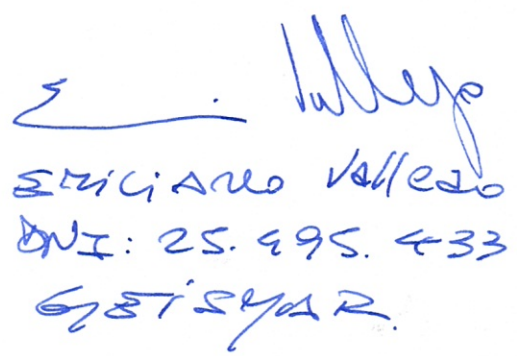 E... Vallejo
EMILIANO Vallejo
DNI: 25.495.433
GEISMAR.